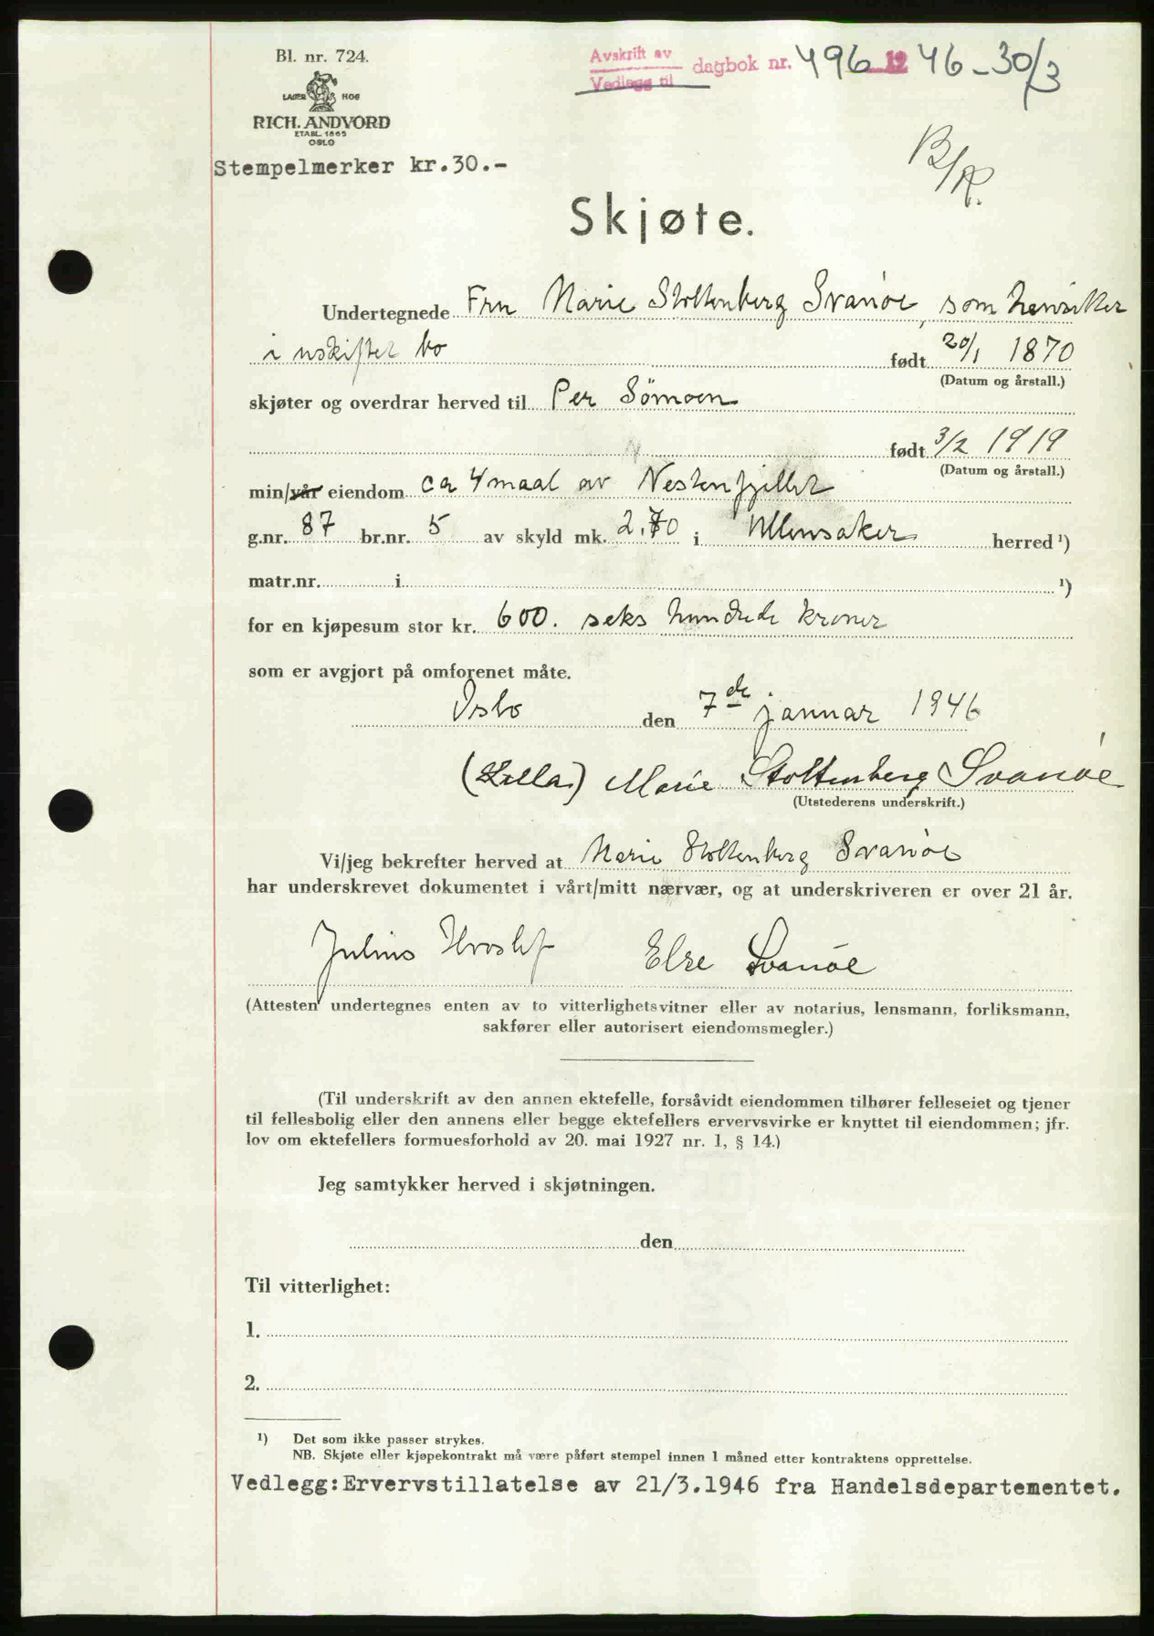 Bl. nr. 724.
Avskrift av
Vedlegg til
dagbok nr. 496 1946-30/3
LAGER HOS
RICH. ANDVORD
ETABL. 1865
OSLO
Stempelmerker kr.30.-
B/R.
Skjøte.
Undertegnede Fru Marie Stoltenberg Svanøe, som hensitter
i uskiftet bo født 20/1 1870
(Datum og årstall.)
skjøter og overdrar herved til Per Sömoen
født 3/2 1919
(Datum og årstall.)
min/vår eiendom ca 4 maal av Nestenfjellet
g.nr. 87 br.nr. 5 av skyld mk. 2.70 i Ullensaker herred ¹)
matr.nr. i ¹)
for en kjøpesum stor kr. 600. seks hundrede kroner
som er avgjort på omforenet måte.
Oslo den 7de januar 1946
(Lalla) Marie Stoltenberg Svanøe
(Utstederens underskrift.)
Vi/jeg bekrefter herved at Marie Stoltenberg Svanøe
har underskrevet dokumentet i vårt/mitt nærvær, og at underskriveren er over 21 år.
Julius Hroslef Else Svanøe
(Attesten undertegnes enten av to vitterlighetsvitner eller av notarius, lensmann, forliksmann,
sakfører eller autorisert eiendomsmegler.)
(Til underskrift av den annen ektefelle, forsåvidt eiendommen tilhører felleseiet og tjener
til fellesbolig eller den annens eller begge ektefellers ervervsvirke er knyttet til eiendommen; jfr.
lov om ektefellers formuesforhold av 20. mai 1927 nr. 1, § 14.)
Jeg samtykker herved i skjøtningen.
den
Til vitterlighet:
1.
2.
¹) Det som ikke passer strykes.
NB. Skjøte eller kjøpekontrakt må være påført stempel innen 1 måned etter kontraktens opprettelse.
Vedlegg:Ervervstillatelse av 21/3.1946 fra Handelsdepartementet.